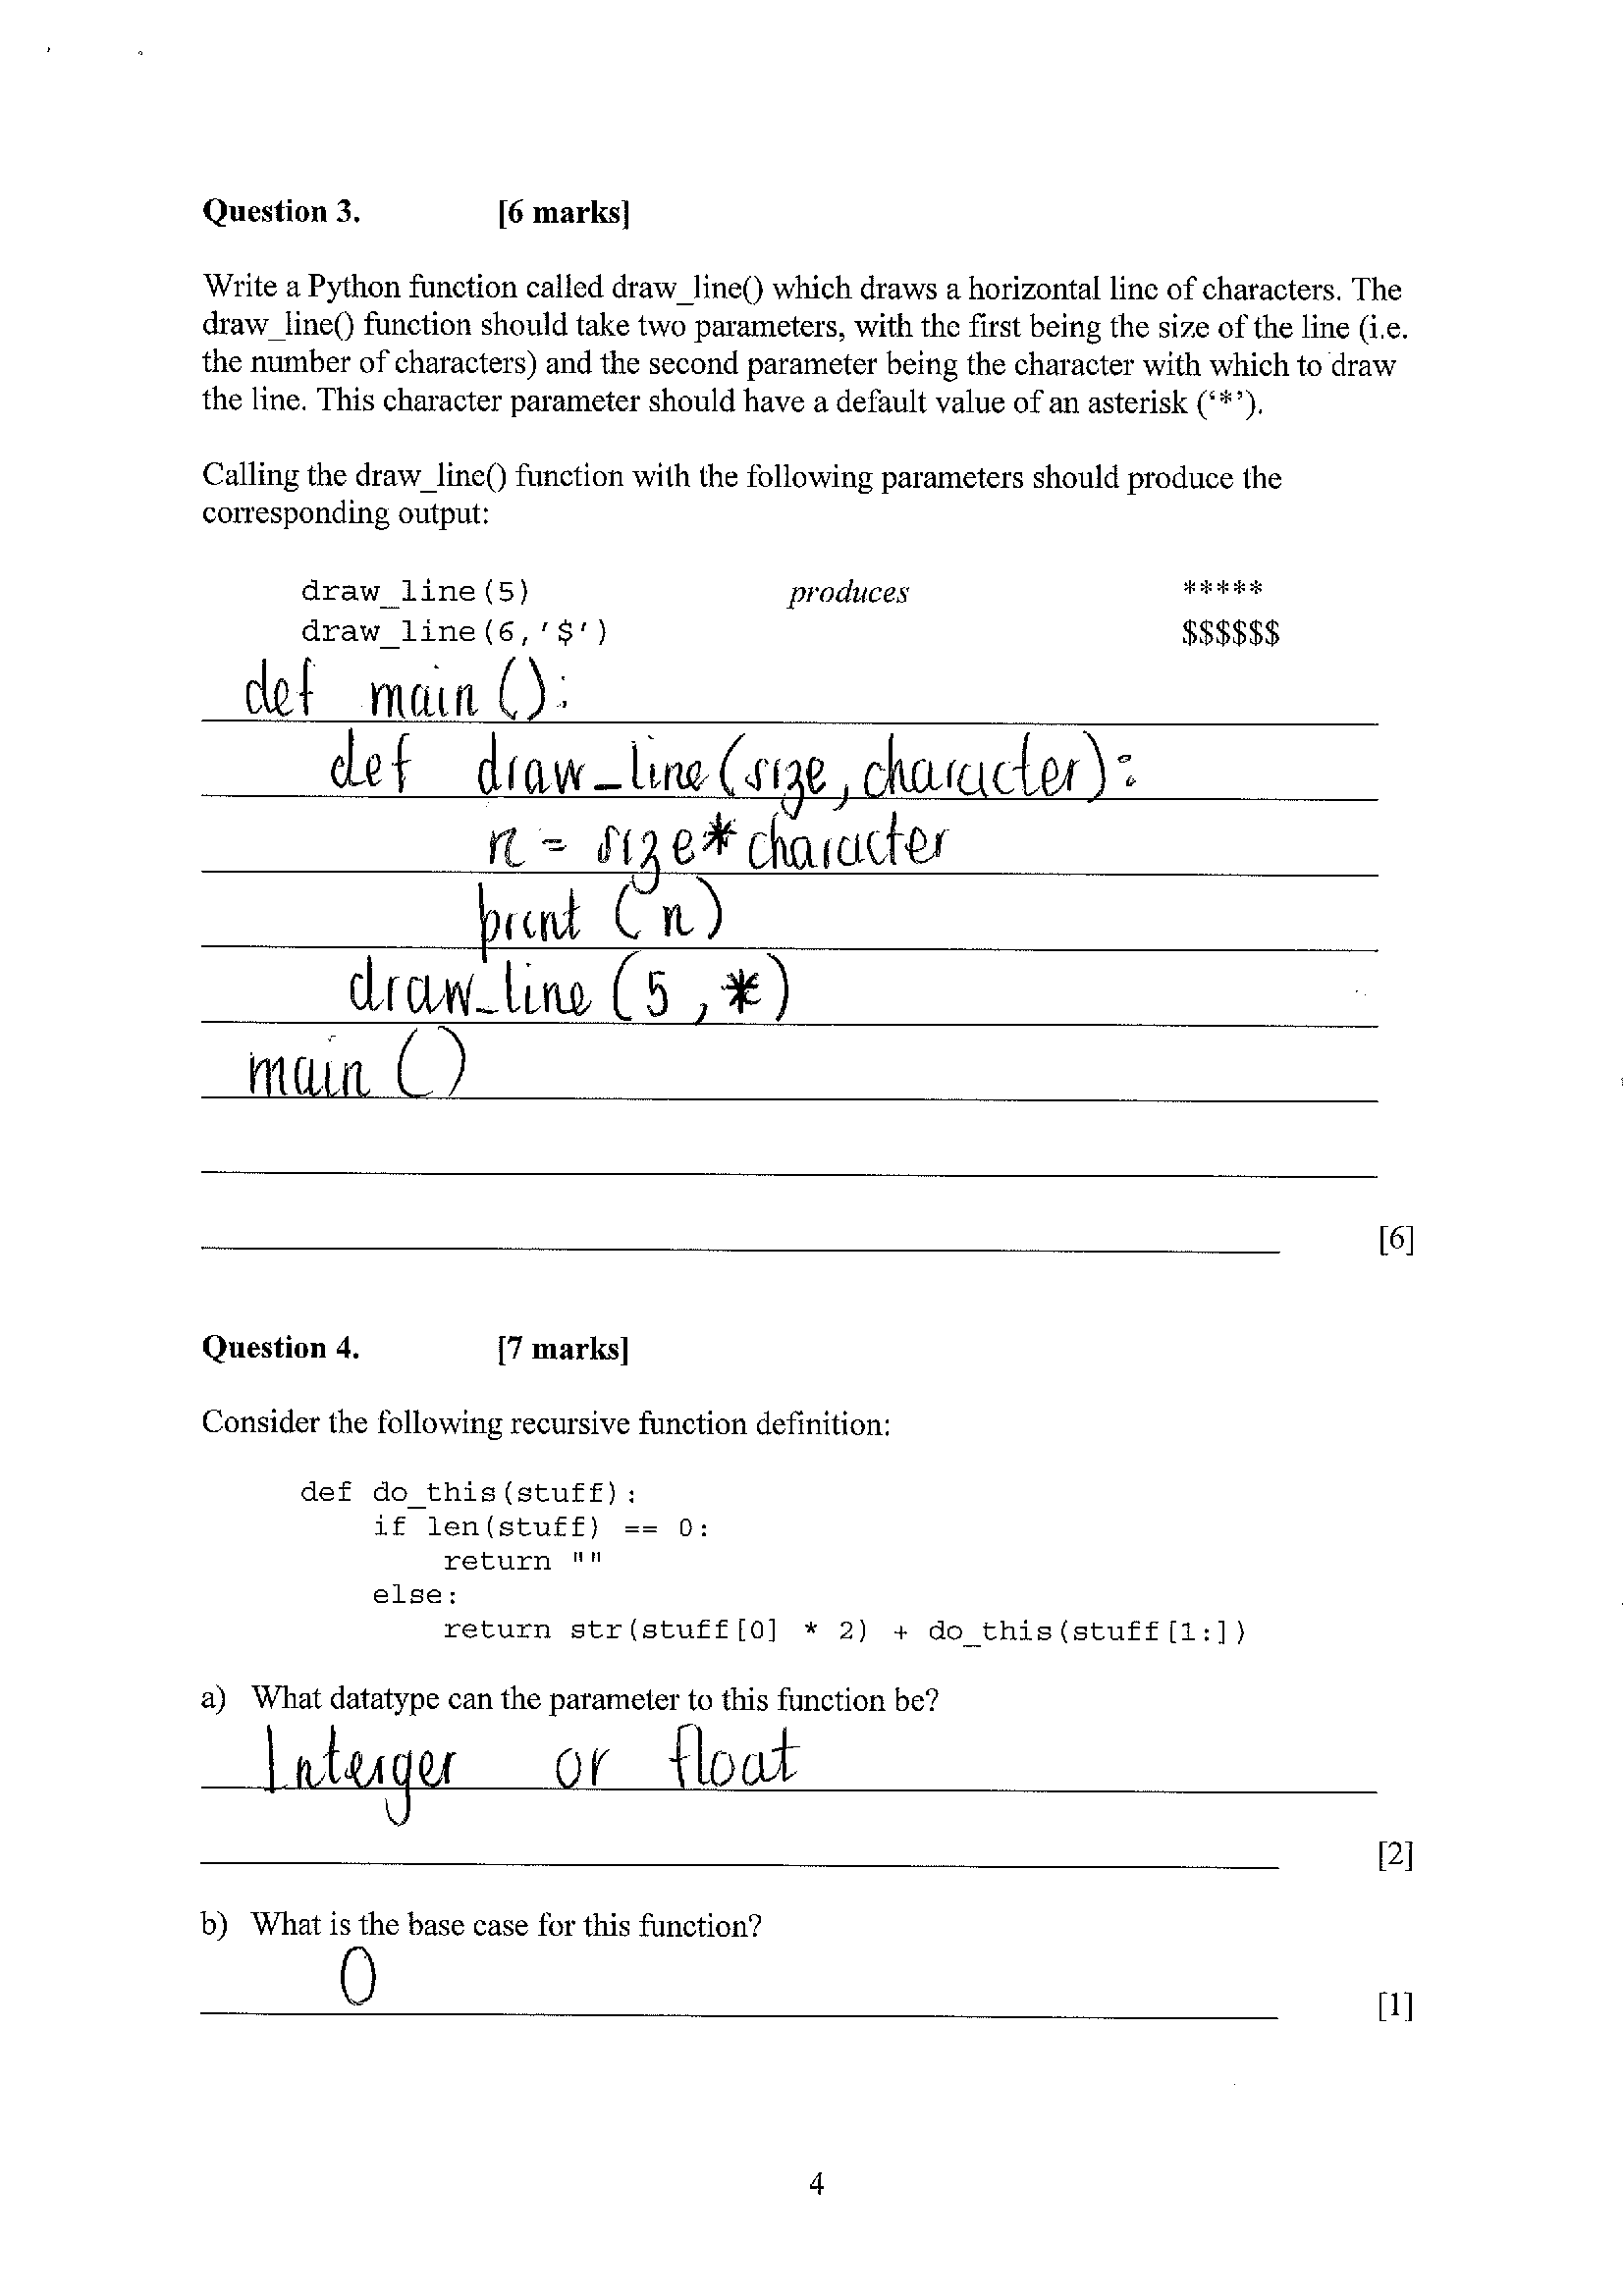 Question 3. [6 marks]
Write a Python function called draw_line() which draws a horizontal line of characters. The
draw_line() function should take two parameters, with the first being the size of the line (i.e.
the number of characters) and the second parameter being the character with which to draw
the line. This character parameter should have a default value of an asterisk (‘*’).
Calling the draw_line() function with the following parameters should produce the
corresponding output:
draw_line(5) produces *****
draw_line(6,'$') $$$$$$
def main():
def draw_line(size, character):
n = size*character
print (n)
draw_line (5, *)
main ()
[6]
Question 4. [7 marks]
Consider the following recursive function definition:
def do_this(stuff):
if len(stuff) == 0:
return ""
else:
return str(stuff[0] * 2) + do_this(stuff[1:])
a) What datatype can the parameter to this function be?
Interger or float
[2]
b) What is the base case for this function?
0
[1]
4